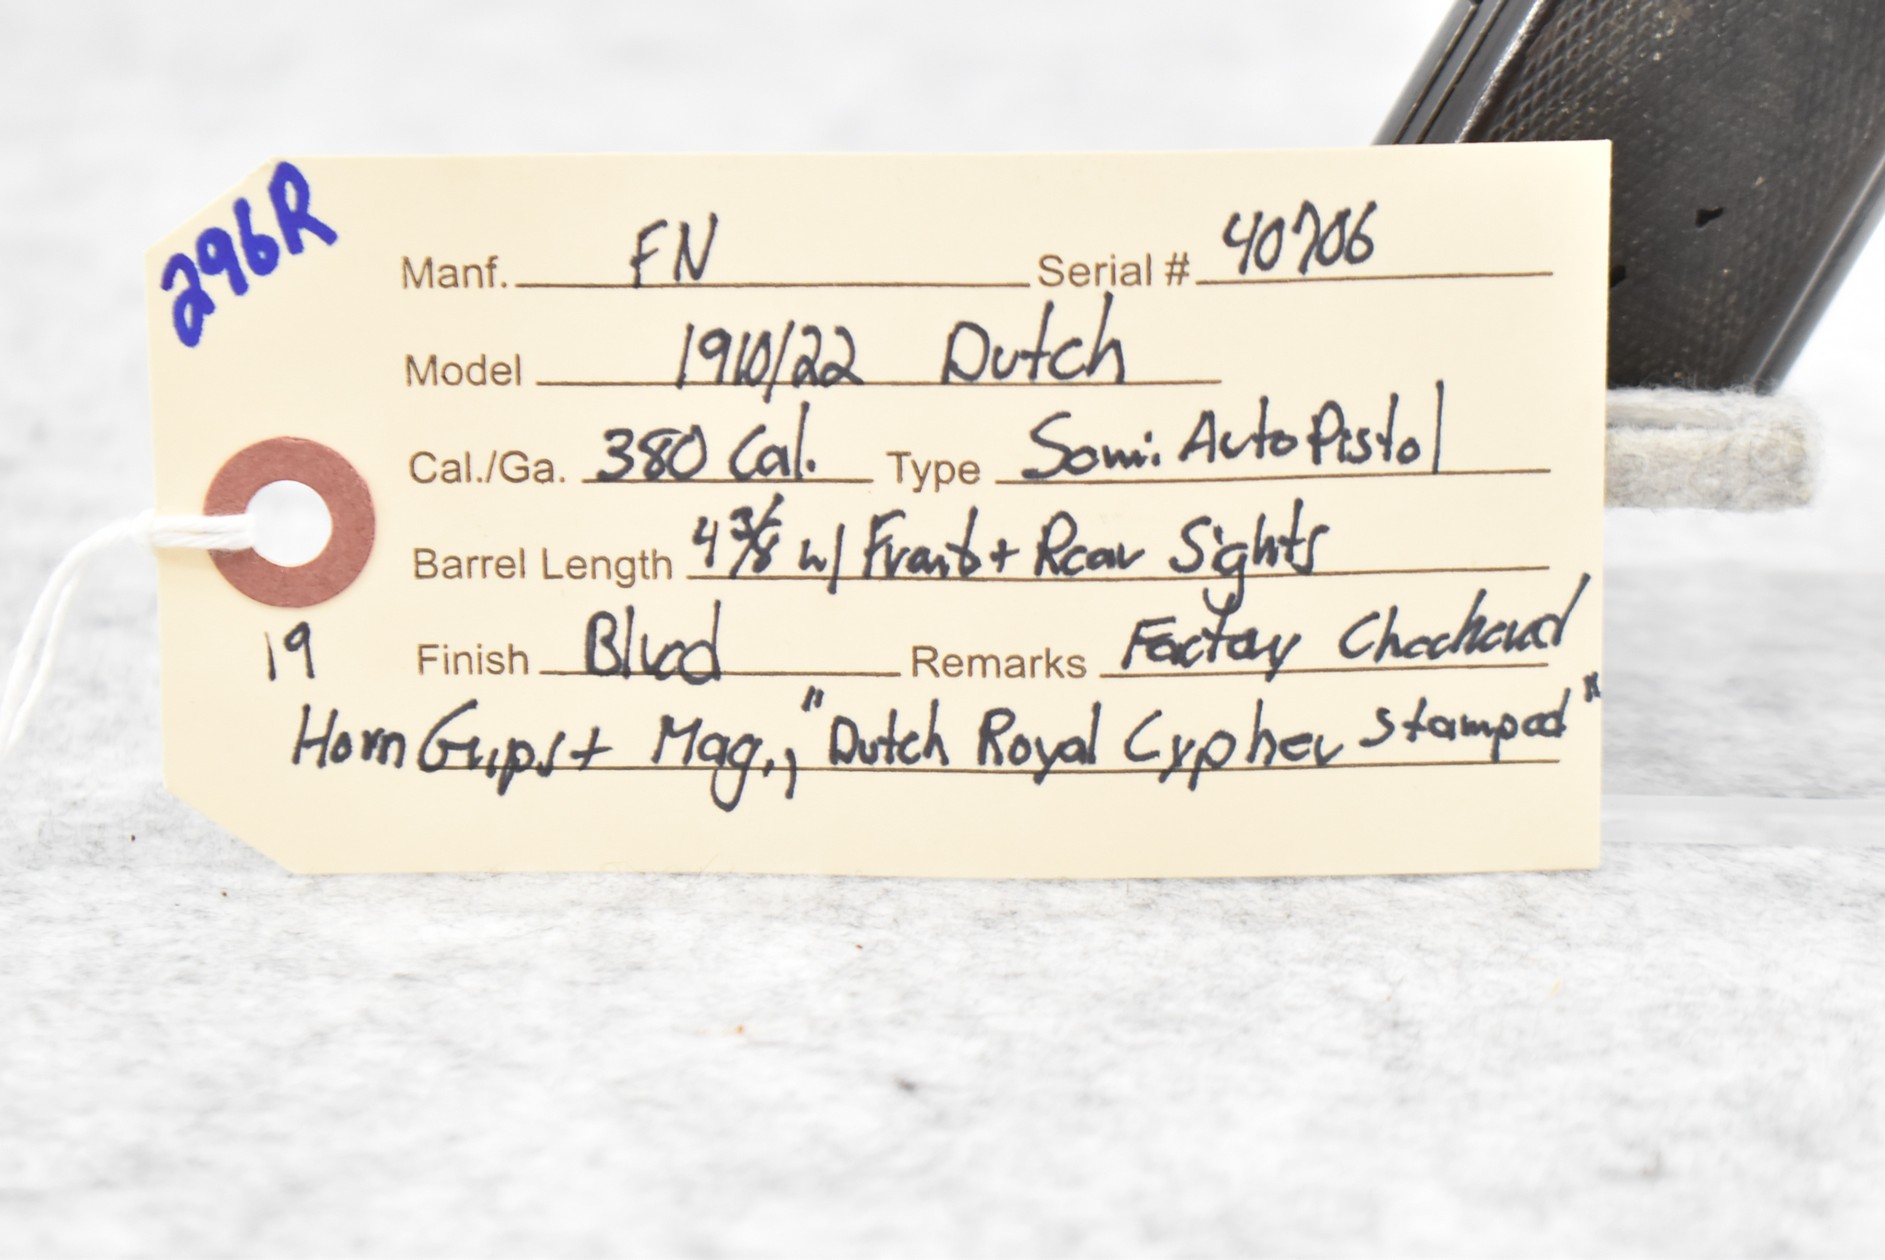 296R
Manf. FN Serial # 40706
Model 1910/22 Dutch
Cal./Ga. 380 Cal. Type Semi Auto Pistol
Barrel Length 4 3/8 w/ Front + Rear Sights
19 Finish Blued Remarks Factory Checkered
Horn Grips + Mag., "Dutch Royal Cypher Stamped"